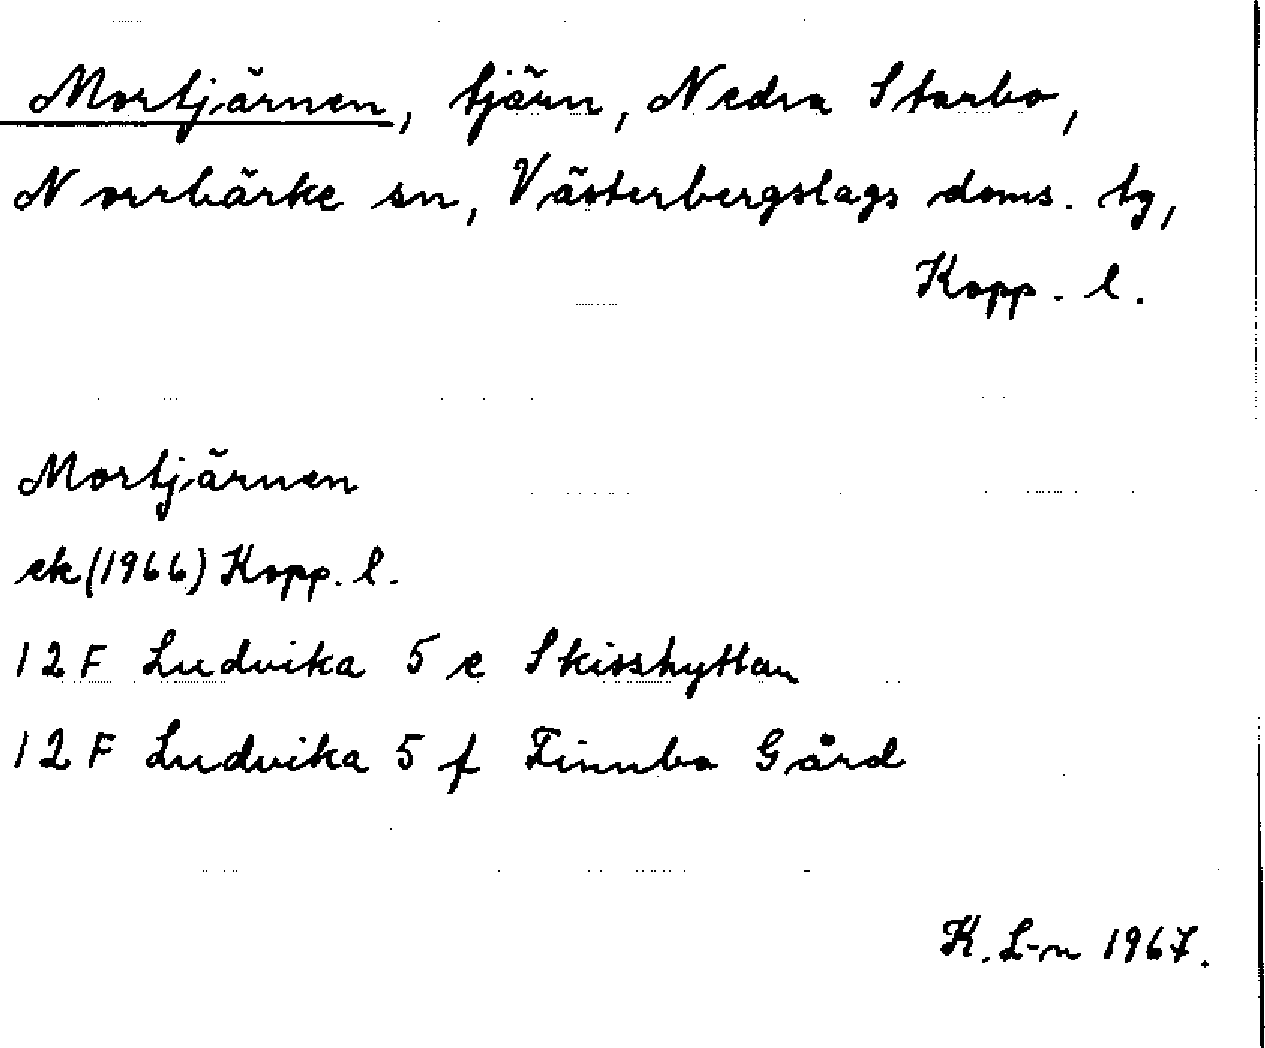 Mortjärnen, tjärn, Nedra Starbo,
Norrbärke sn, Västerbergslags doms. tg,
Kopp. l.
Mortjärnen
ek (1966) Kopp. l.
12 F Ludvika 5 e Skisshyttan
12 F Ludvika 5 f Finnbo Gård
K. L-n 1967.